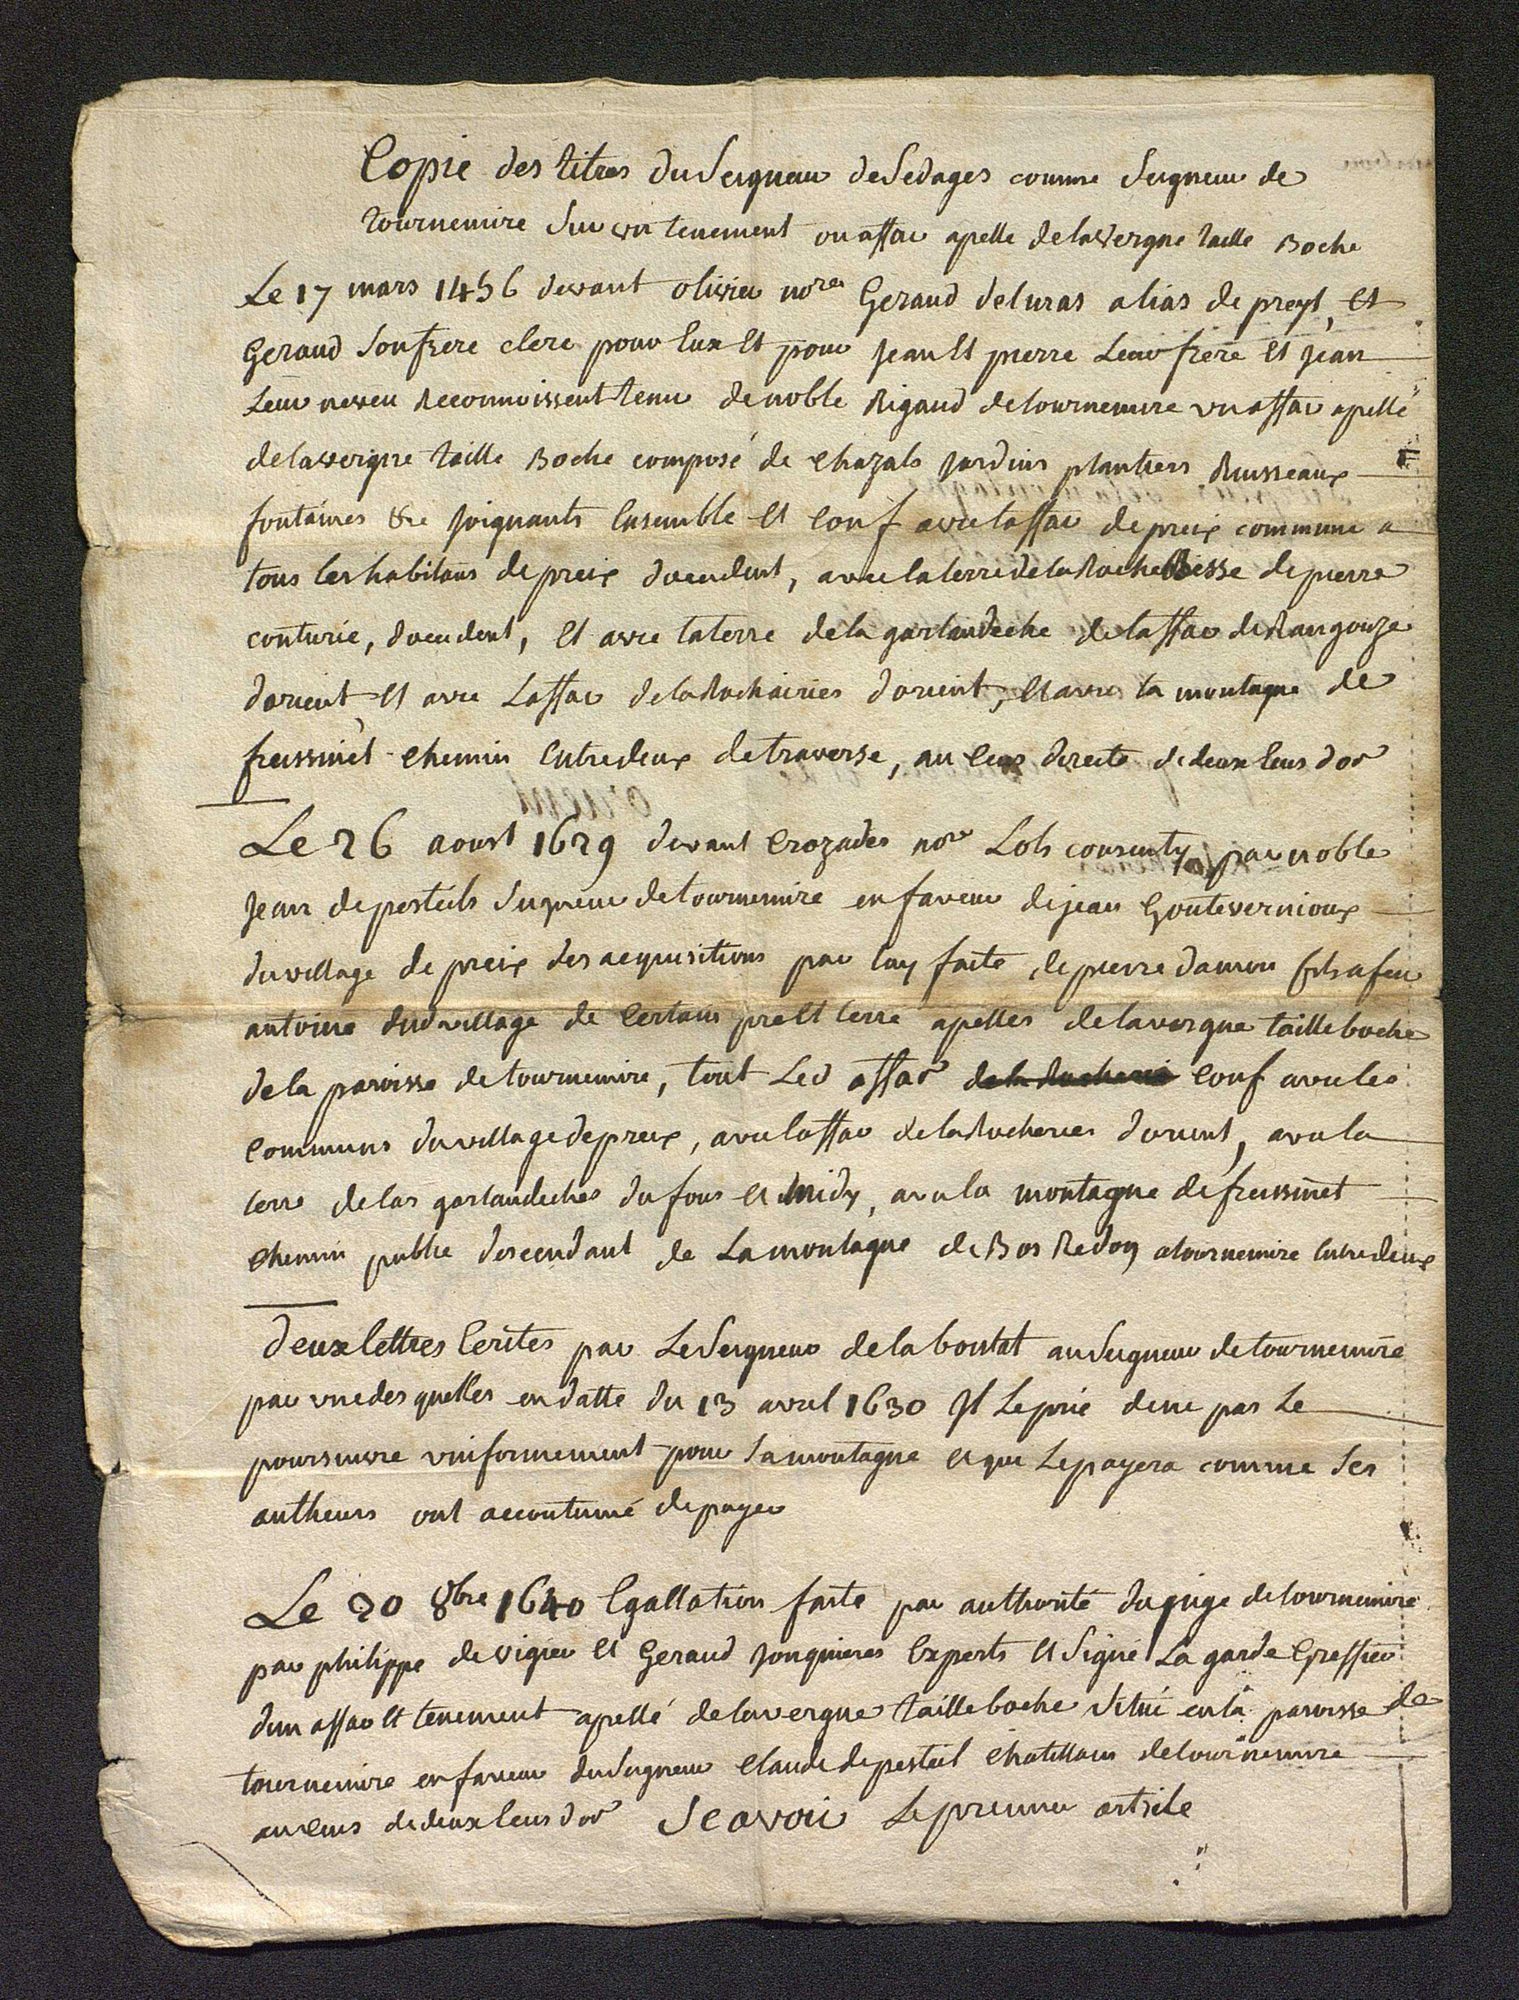 Copie des titres du Seigneur de Sedages comme Seigneur de
tournemire Sur un tenement ou affar apelle de la Vergne taille Boche
Le 17 mars 1456 devant olivier nore Geraud deluras alias de preyt, Et
Geraud Son frere clerc pour Eux Et pour Jean Et pierre Leur frere Et Jean
Leur neveu Reconnoissent tenir de noble Rigaud de tournemire un affar apellé
de la vergne taille Boche composé de Chazals Jardins plantiers Ruisseaux
fontaines &c Joignants Ensemble Et Conf avec l'affar de preix commune a
tous les habitans de preix d'occident, avec la terre de la Roche Besse de pierre
conturie, d'occident, Et avec la terre de la garlandeche de l'affar de Rangouze
d'orient, Et avec L'affar de la Rochairies d'orient, Et avec la montagne de
freissinet chemin Entre deux de traverse, au Cens directe de deux Ceus d'or
Le 26 aoust 1629 devant Crozades nore Lods consenty par noble
Jean de pesteils Seigneur de tournemire en faveur de jean Goutevernioux
du village de preix des acquisitions par luy faite de pierre Damon fils a feu
antoine dud village de Certain pre Et terre apelles de la vergne taille boche
de la paroisse de tournemire, tout Led affar de la Rocherie Conf avec les
Communs du village de preix, avec l'affar de la Rocheries d'orient, avec la
terre de las garlandeches du fous Et midy, avec la montagne de freissinet
Chemin public descendant de La montagne de Bos Redon a tournemire Entre deux
deux lettres Ecrites par Le Seigneur de la bontat au Seigneur de tournemire
par une des quelles en datte du 13 avril 1630 Il Le prie de ne pas Le
poursuivre uniformement pour Sa montagne Et que Le payera comme Ses
autheurs ont accoutumé de payer
Le 20 8bre 1640 Egallation faite par authorité du juge de tournemire
par philippe de vigier Et Geraud Jonquieres Experts Et Signé La garde Greffier
d'un affar Et tenement apellé de la vergne taille boche Situé en la paroisse de
tournemire en faveur du Seigneur Claude de pesteil Chatillain de tournemire
au Cens de deux Ceus d'or Scavoir Le premier article